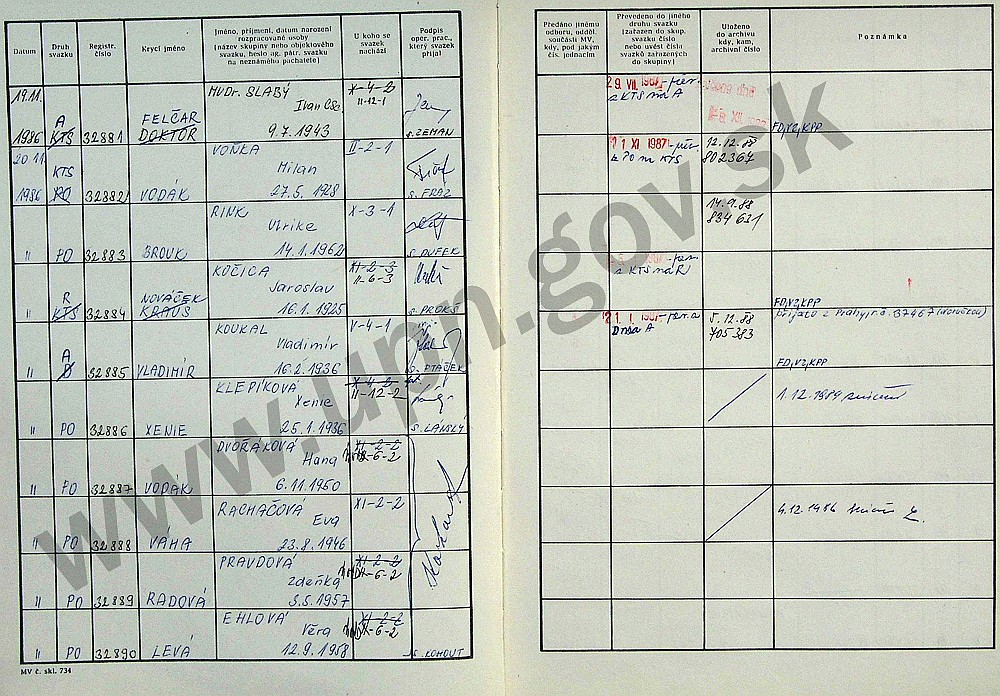 Datum
Druh svazku
Registr. číslo
Krycí jméno
Jméno, příjmení, datum narození
rozpracované osoby
(název skupiny nebo objektového
svazku, heslo ag. pátr. svazku
na neznámého pachatele)
U koho se
svazek
nachází
Podpis
oper. prac.,
který svazek
přijal
Předáno jinému
odboru, odděl.
součásti MV,
kdy, pod jakým
čís. jednacím
Převedeno do jiného
druhu svazku
(zařazen do skup.
svazku číslo
nebo uvést čísla
svazků zařazených
do skupiny)
Uloženo
do archivu
kdy, kam,
archivní číslo
Poznámka
19.11. MVDr. SLABÝ X-4-2 29 VII. 198
A FELČAR Ivan CSc II-12-1 z KTS na A
1986 KTS 32881 DOKTOR 9.7.1943 s. ZEMAN FD,VZ,KPP
20.11. VOŇKA II-2-1 11 XI. 1987 12.12.88
KTS Milan KTS 802367
1986 PO 32882 VODÁK 27.5.1928
RINK X-3-1 14.9.88
Ulrike 834631
" PO 32883 BROUK 14.1.1962 s. DUFEK
KOČICA XI-2-3
R NOVÁČEK Jaroslav II-6-3 z KTS na R
" KTS 32884 KRAUS 16.1.1925 s. PROKŠ FD,VZ,KPP
KOUKAL V-4-1 5.12.88 přijato z Prahy, r.č. 37467
A Vladimír A 705383
" D 32885 VLADIMÍR 16.2.1936 s. PTÁČEK FD,VZ,KPP
KLEPÍKOVÁ X-4-2
Xenie II-12-2 1.12.1989
" PO 32886 XENIE 25.1.1936 s. LÁNSKÝ
DVOŘÁKOVÁ XI-2-2
Hana -6-2
" PO 32887 VODÁK 6.11.1950
RACHAČOVÁ XI-2-2
Eva 4.12.1986
" PO 32888 VÁHA 23.8.1946
PRAVDOVÁ XI-2-2
Zdeňka -6-2
" PO 32889 RADOVÁ 3.5.1957
EHLOVÁ XI-2-2
Věra -6-2
" PO 32890 LEVÁ 12.9.1958 s. KOHOUT
MV č. skl. 734
www.upn.gov.sk